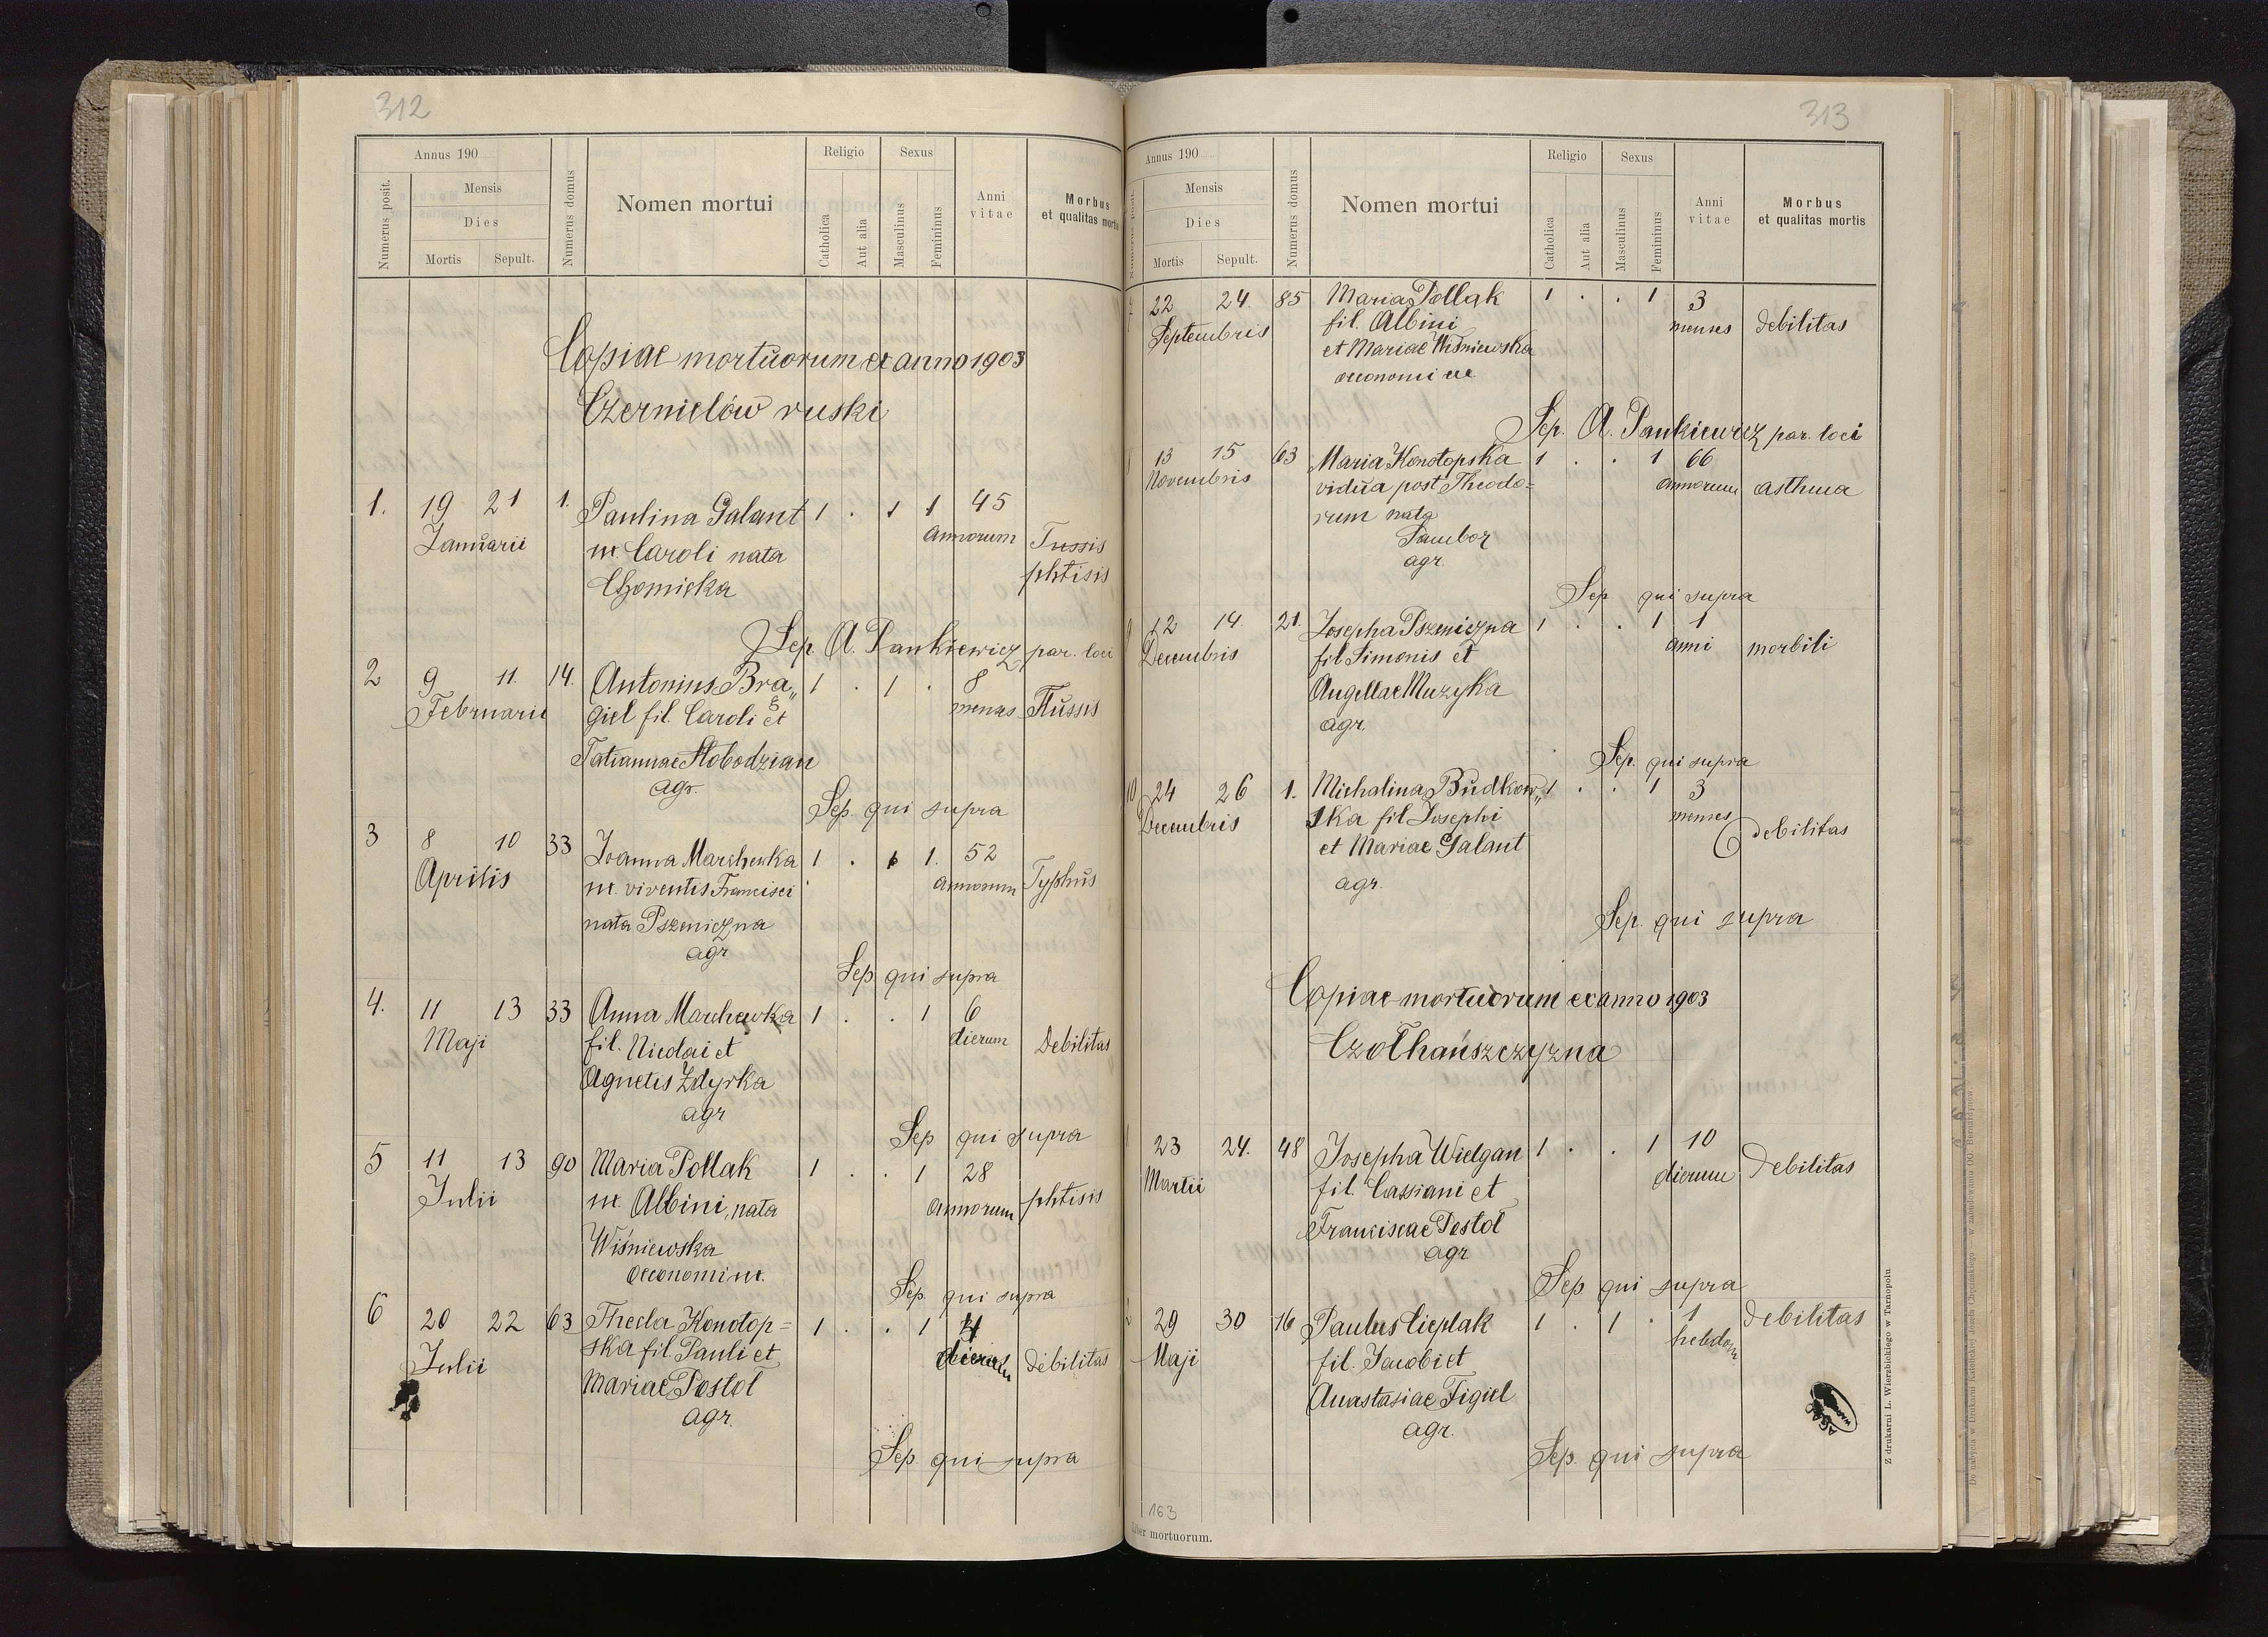 312
Annus 190
Numerus posit.
Mensis
Dies
Mortis Sepult.
Numerus domus
Nomen mortui
Religio
Catholica
Aut alia
Sexus
Masculinus
Femininus
Anni vitae
Morbus
et qualitas mortis
Copiae mortuorum ex anno 1903
Czernielów ruski
1. 19 21 1. Paulina Galant 1 . 1 1 45
Januarii m. Caroli nata annorum Tussis
phtisis
Sep. A. Pankiewicz par. loci
2 9 11. 14. Antonius Bra„ 1 . 1 . 8
Februarii giel fil. Caroli et menses Tussis
Tatiannae Slobodzian
agr.
Sep. qui supra
3 8 10 33 Joanna Marchewka 1 . 1 1. 52
Aprilis m. viventis Francisci annorum Typhus
nata Pszeniczna
agr
Sep qui supra
4. 11 13 33 Anna Marchewka 1 . . 1 6
Maji fil. Nicolai et dierum Debilitas
Agnetis Zdyrka
agr
Sep qui supra
5 11 13 90 Maria Pollak 1 . . 1 28
Julii m. Albini, nata annorum phtisis
Wiśniewska
oeconomi m.
Sep. qui supra
6 20 22 63 Thecla Konotop=
1 . . 1 4
Julii ska fil. Pauli et debilitas
Mariae Postoł
agr.
Sep. qui supra
313
Annus 190
Numerus posit.
Mensis
Dies
Mortis Sepult.
Numerus domus
Nomen mortui
Religio
Catholica
Aut alia
Sexus
Masculinus
Femininus
Anni vitae
Morbus
et qualitas mortis
7 22 24. 85 Maria Pollak 1 . . 1 3
Septembris fil. Albini menses debilitas
et Mariae Wiśniewska
oeconomi
Sep. A. Pankiewicz par. loci
8 13 15 63 Maria Konotopska 1 . . 1 66
Novembris vidua post Theodo= annorum asthma
rum nata
Sambor
agr.
Sep qui supra
9 12 14. 21. Josepha Pszeniczna 1 . . 1 1
Decembris fil Simonis et anni morbili
Angellae Muzyka
agr.
Sep. qui supra
10 24 26 1. Michalina Budkow„ 1 . . 1 3
Decembris ska fil Josephi menses debilitas
et Mariae Galant
agr.
Sep. qui supra
Copiae mortuorum ex anno 1903
Czołhańszczyzna
1 23 24. 48 Josepha Wielgan 1 . . 1 10
Martii fil. Cassiani et dierum debilitas
Franciscae Postoł
agr
Sep qui supra
2 29 30 16 Paulus Cieplak 1 . 1 . 1 debilitas
Maji fil. Jacobi et hebdom
Anastasiae Figiel
agr.
Sep. qui supra
163
Liber mortuorum.
Z drukarni L. Wierzbickiego w Tarnopolu